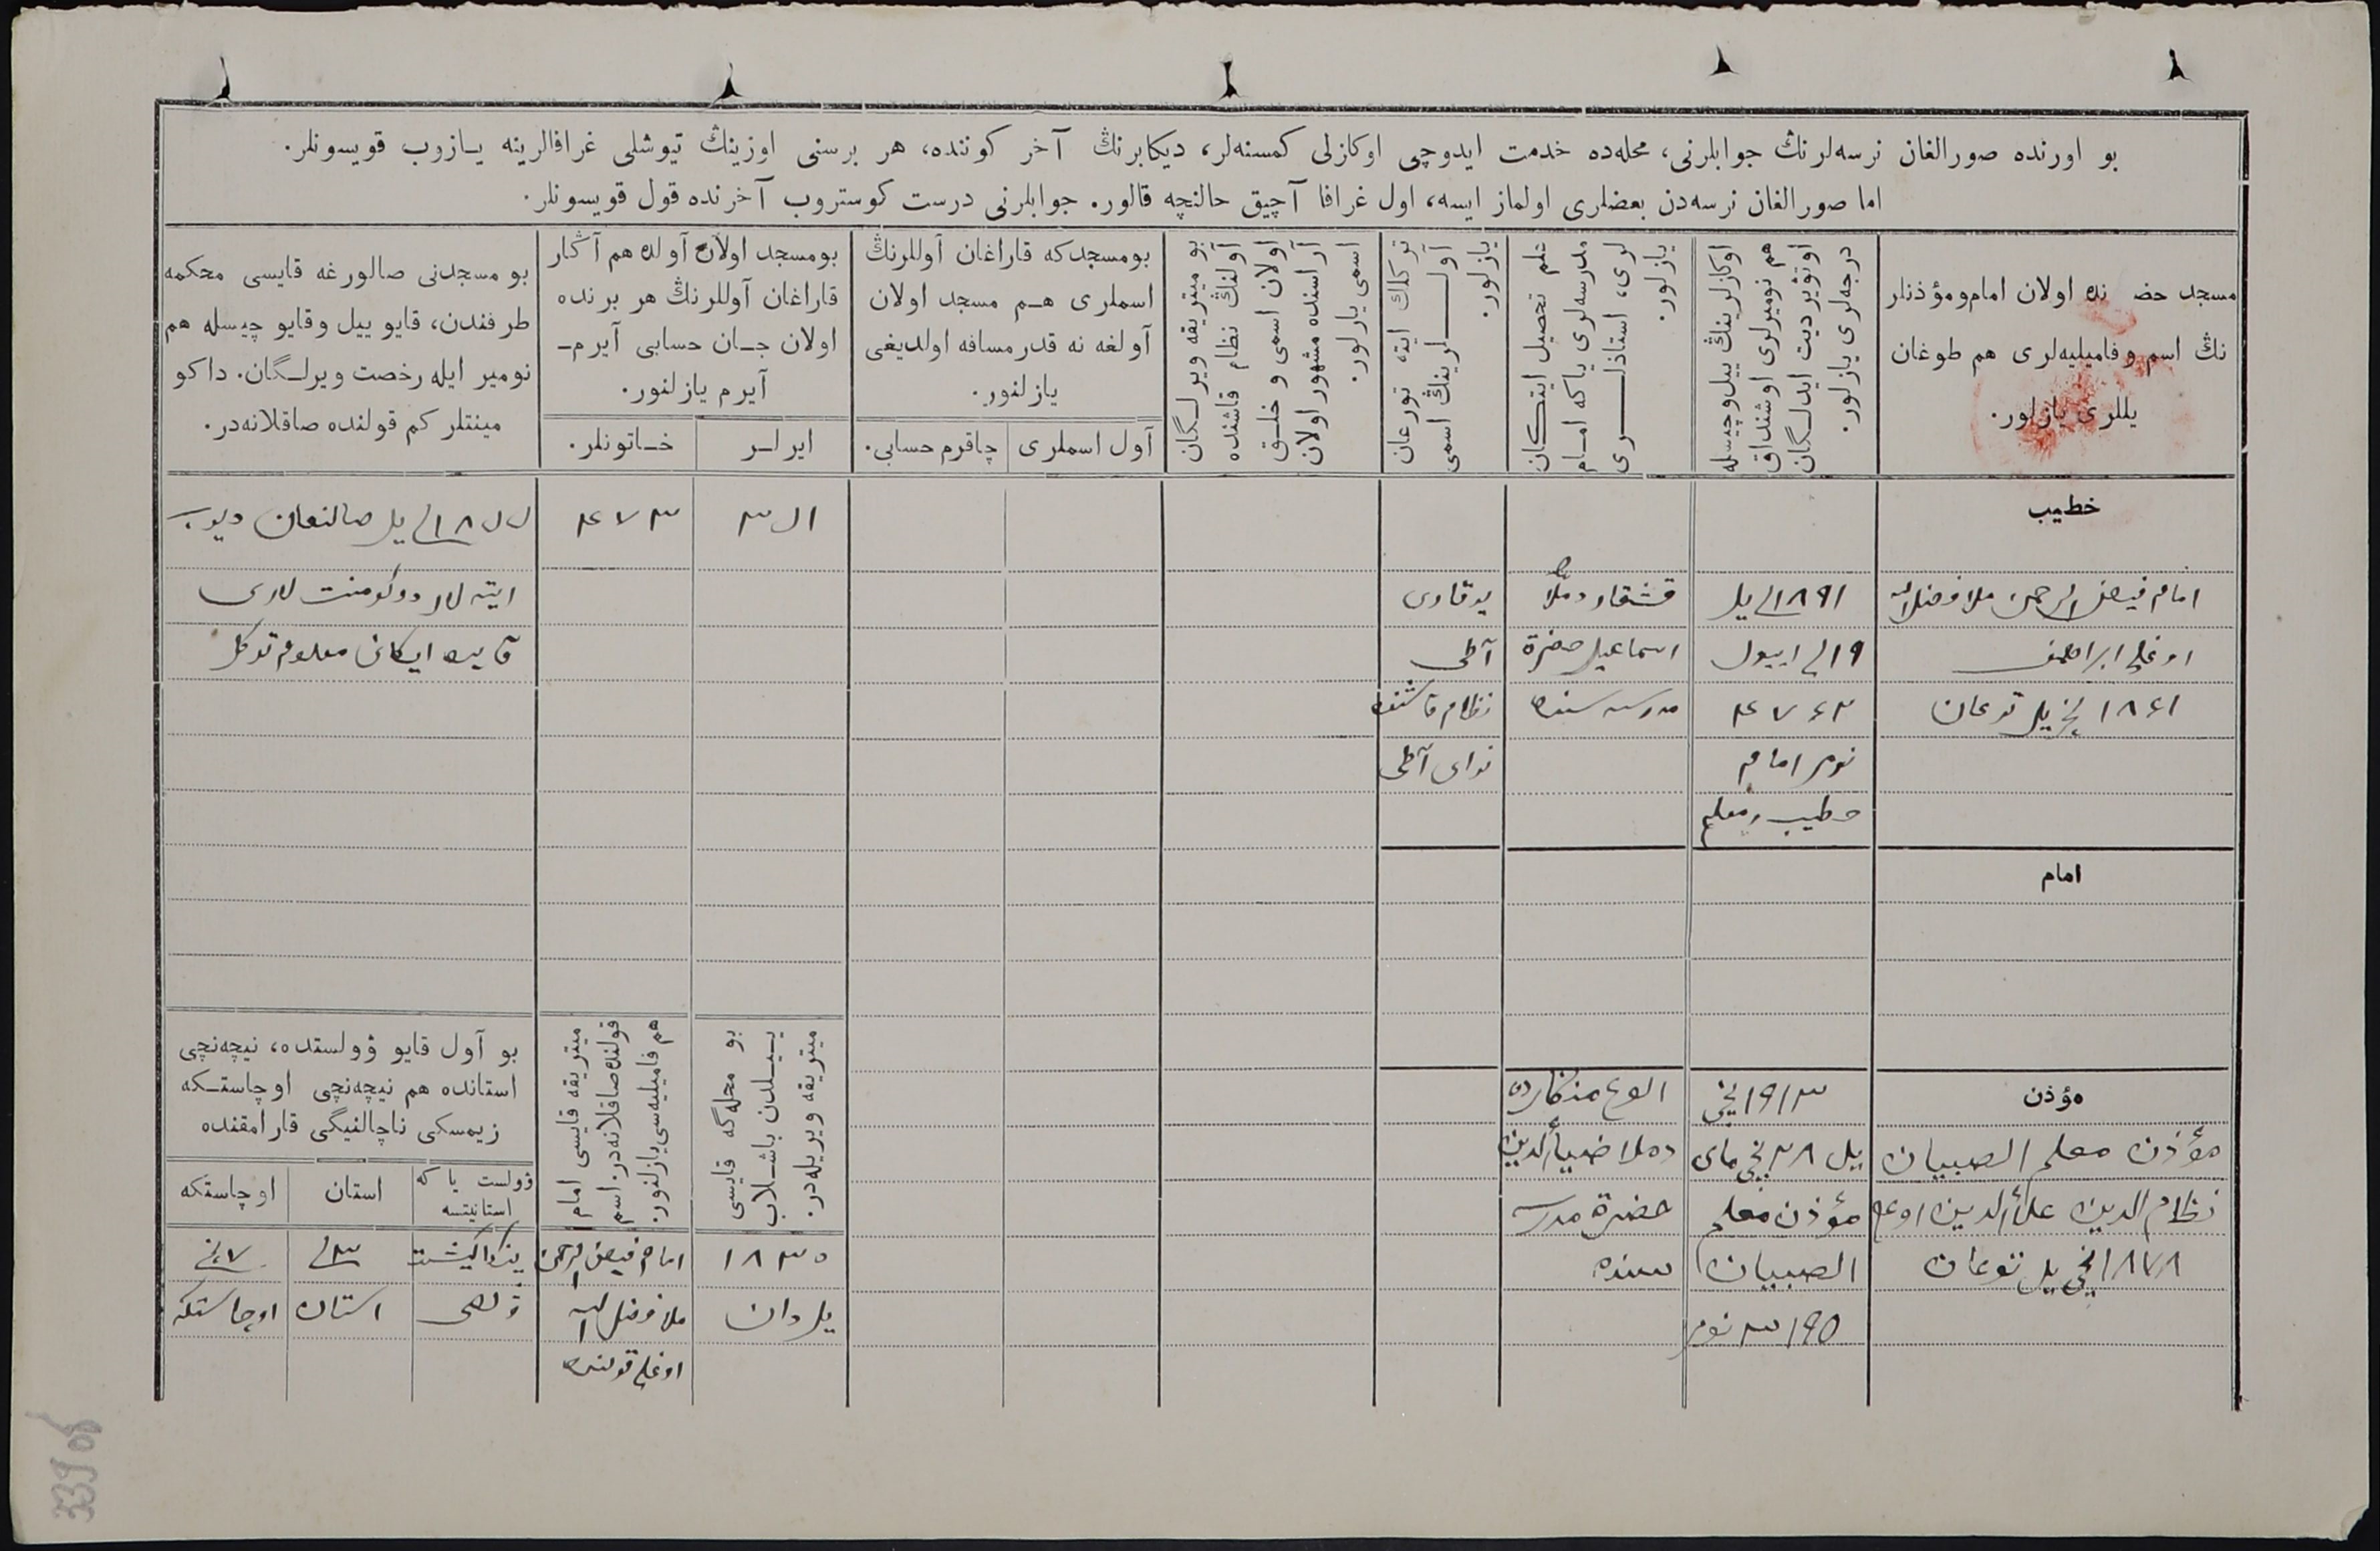 بو اورنده صورالغان نرسه‌لرنڭ جوابلرنی، محله‌ده خدمت ایدوچی اوكازلی كمسنه‌لر، دیكابرنڭ آخر كوننده، هر برسنی اوزینڭ تیوشلی غرافالرینه یـازوب قویسونلر.
اما صورالغان نرسه‌دن بعضلری اولماز ایسه، اول غرافا آچیق حالنچه قالور. جوابلرنی درست كوستروب آخرنده قول قویسونلر.
مسجد حضـ نده اولان امام‌ومؤذنلر
نڭ اسم و فامیلیه‌لری هم طوغان
یللری یازلور.
اوكازلرینڭ ییل‌وچیسله
هم نومیرلری اوشنداق
اوتۋیردیت ایدلـگان
درجه‌لری یازلور.
علم تحصیل ایتكان
مدرسه‌لری یاكه امـام
لری، استاذلــری
یازلور.
تركلك ایته تورغان
آولــلرینڭ اسمی
یازلور.
بو میتریقه ویرلـگان
آولنڭ نظام قاشنده
اولان اسمی و خلـق
آراسنده مشهور اولان
اسمی یازلور.
بومسجدكه قاراغان آوللرنڭ
اسملری هـم مسجد اولان
آولغه نه قدر مسافه اولدیغی
یازلنور.
آول اسملری
چاقرم حسابی.
بومسجد اولان آولده هم آڭار
قاراغان آوللرنڭ هر برنده
اولان جـان حسابی آیرم-
آیرم یازلنور.
ایرلـر
خـاتونلر.
بو مسجدنی صالورغه قایسی محكمه
طرفندن، قایو ییل وقایو چیسله هم
نومیر ایله رخصت ویرلـگان. داكو
مینتلر كم قولنده صاقلانه‌در.
خطیب
امام فیض الرحمن ملا فضل الله
اوغلی ابراهیمف
۱۸۶۱ نچی یل توغان
۱۸۹۱ نچی یل
۱۹ نچی اییول
۴۷۶۳
نومر امام
خطیب ومعلم
قشقار دملا
اسماعیل حضرة
مدرسه سنده
یوقاری
آطی
نظام قاشنده
نوای آطی
۴۷۳
یل صالنغان دیوب
ایته‌لار دوكومنت لاری
قایده ایكانی معلوم توگل
امام
مؤذن
مؤذن معلم الصبیان
نظام الدین علأ الدین اوغلی
۱۸۷۸ نچی یل توغان
۱۹۱۳ نچی
ییل ۲۸ نچی مای
مؤذن معلم
الصبیان
۳۱۹۵ نومر
دملا ضیأ الدین
حضرة مدرسه
سنده
بو محله‌گه قایسی
ییـلدن باشـلاب
میتریقه ویریله‌در.
۱۸۳۰
یلردان
میتریقه قایسی امام
قولنده صاقلانه‌در، اسم
هم فامیلیه‌سی یازلنور.
امام فیض الرحمن
ملا فضل الله
اوغلی قولنده
بو آول قایو ۋولستده، نیچه‌نچی
استانده هم نیچه‌نچی اوچاستـكه
زیمسكی ناچالنیگی قارامقنده
ۋولست یا كه
استانیتسه
استان
اوچاستكه
۳ نچی
استان
۷ نچی
اوچاستكه
339 об